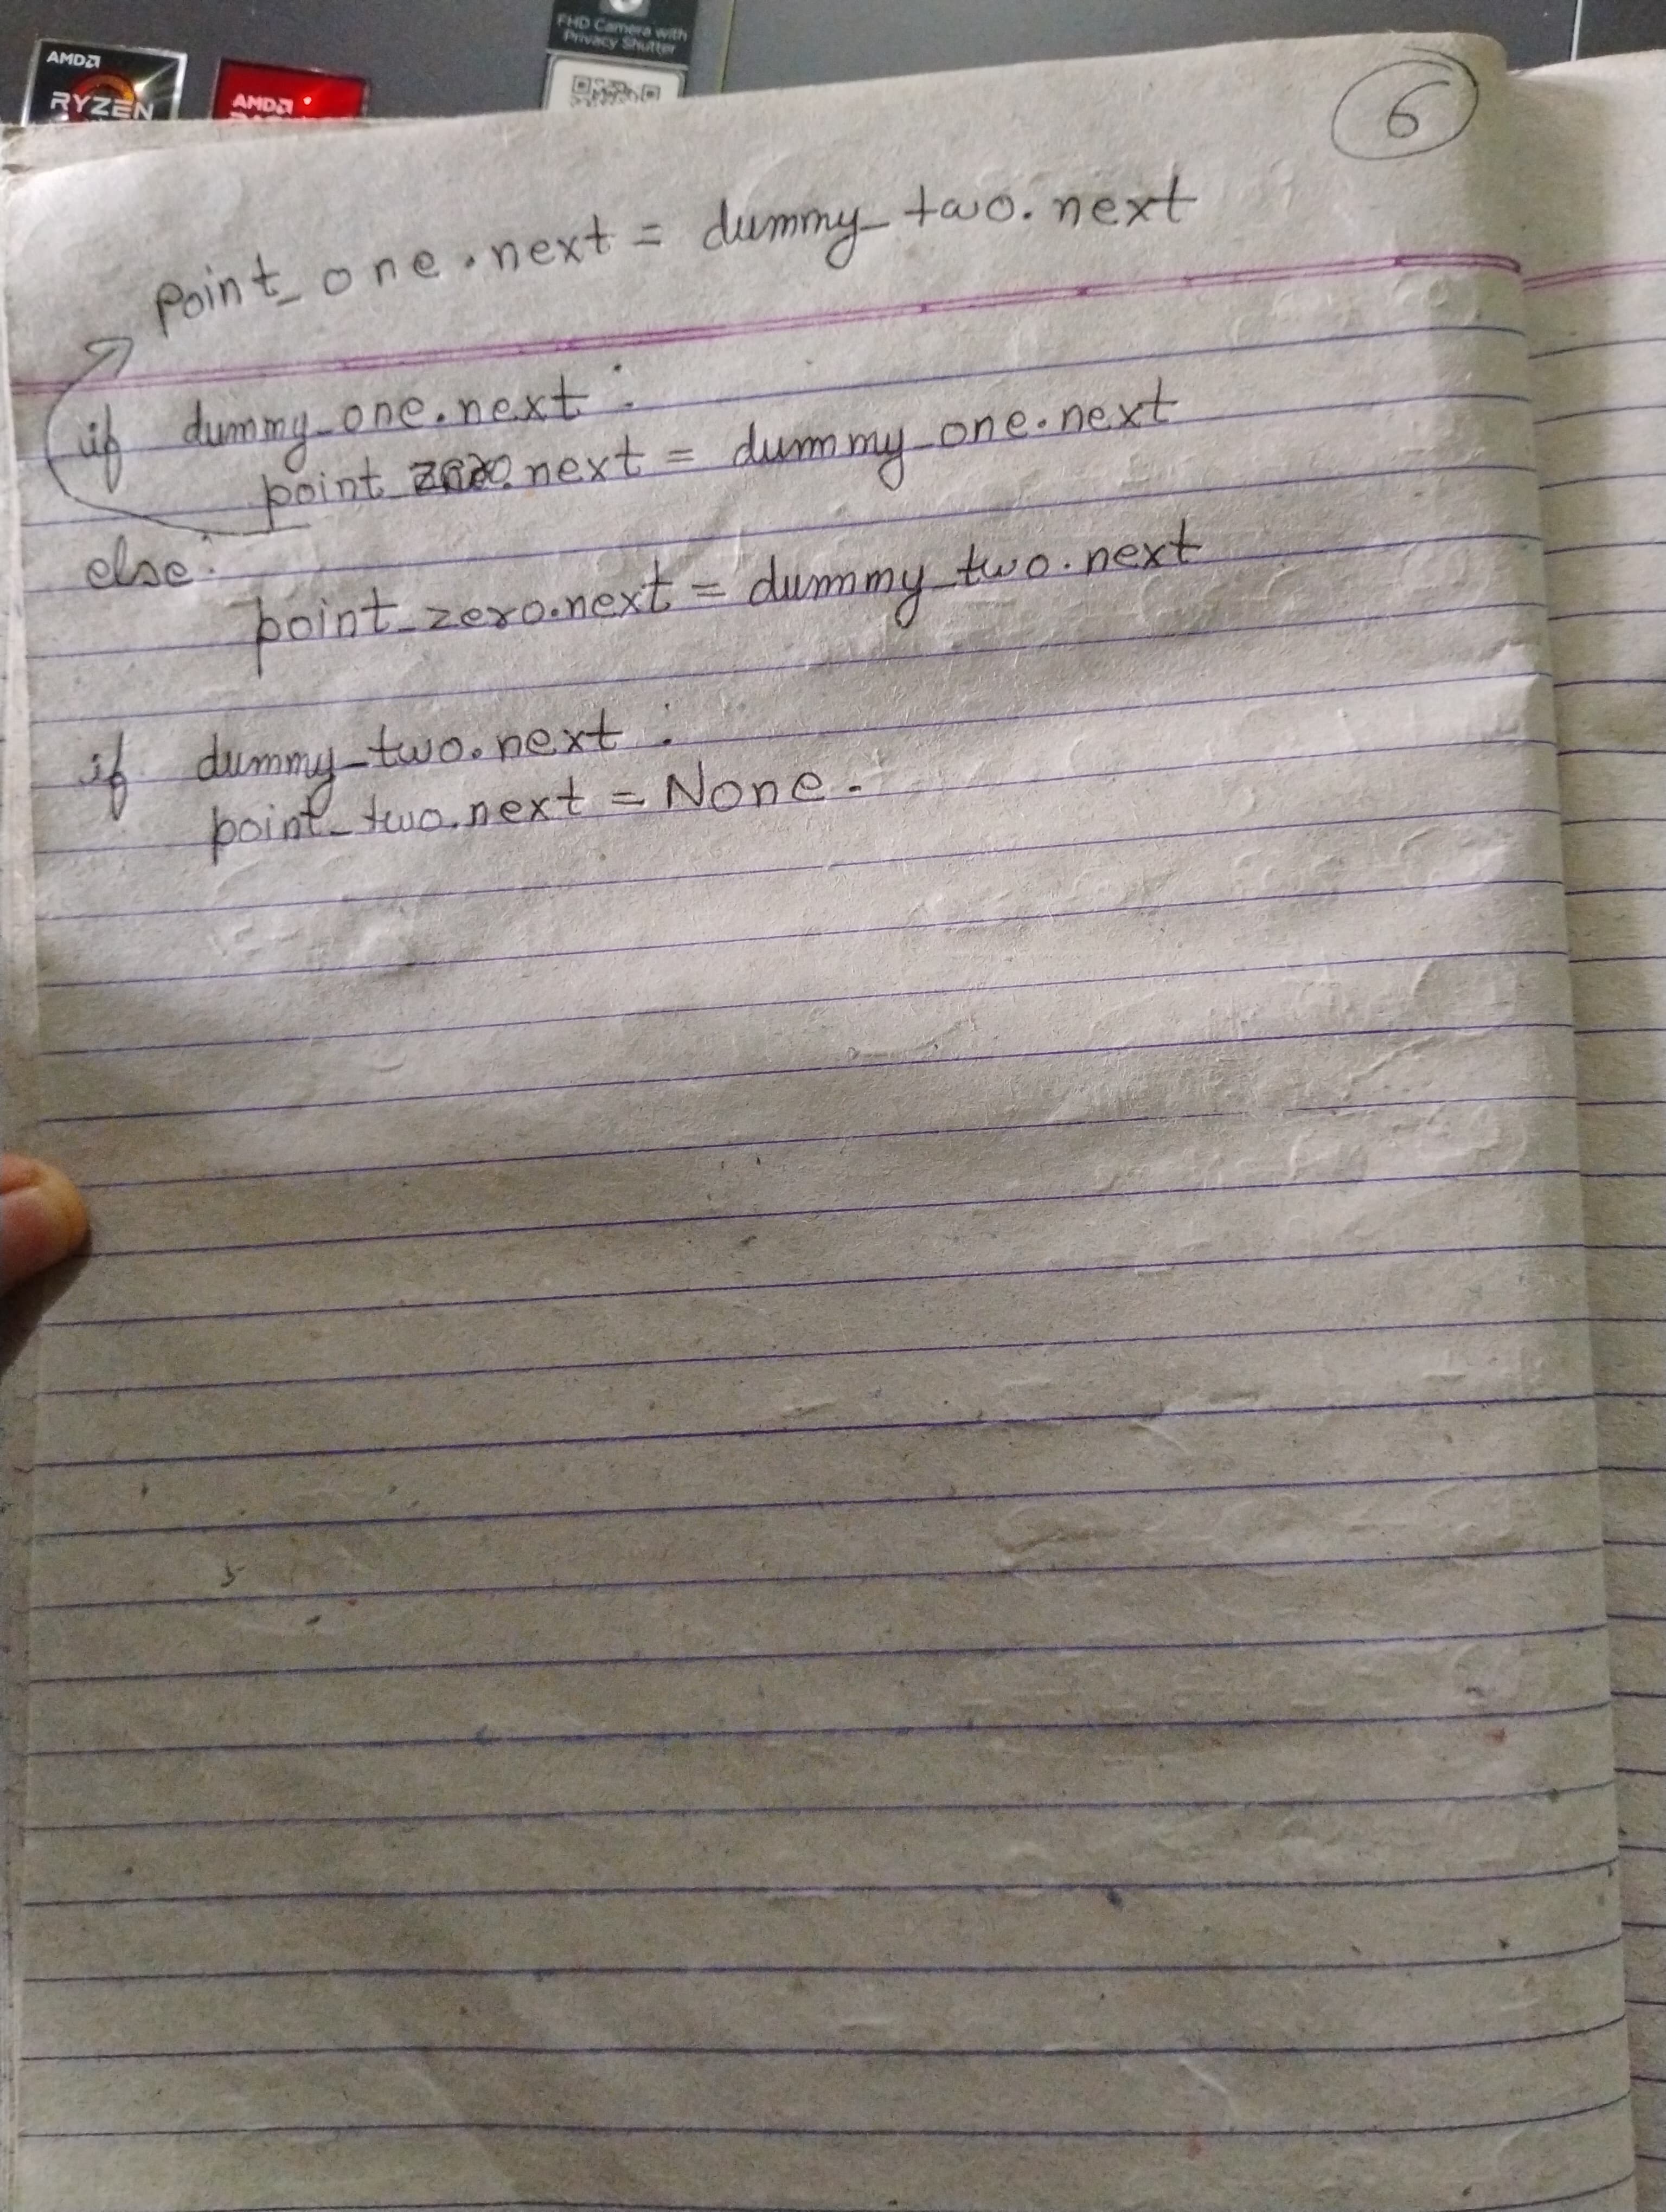 FHD Camera with
Privacy Shutter
AMD
RYZEN
AMD
6
point_one.next = dummy_two.next
if dummy_one.next :
point_zero.next = dummy_one.next
else:
point_zero.next = dummy_two.next
if dummy_two.next :
point_two.next = None.